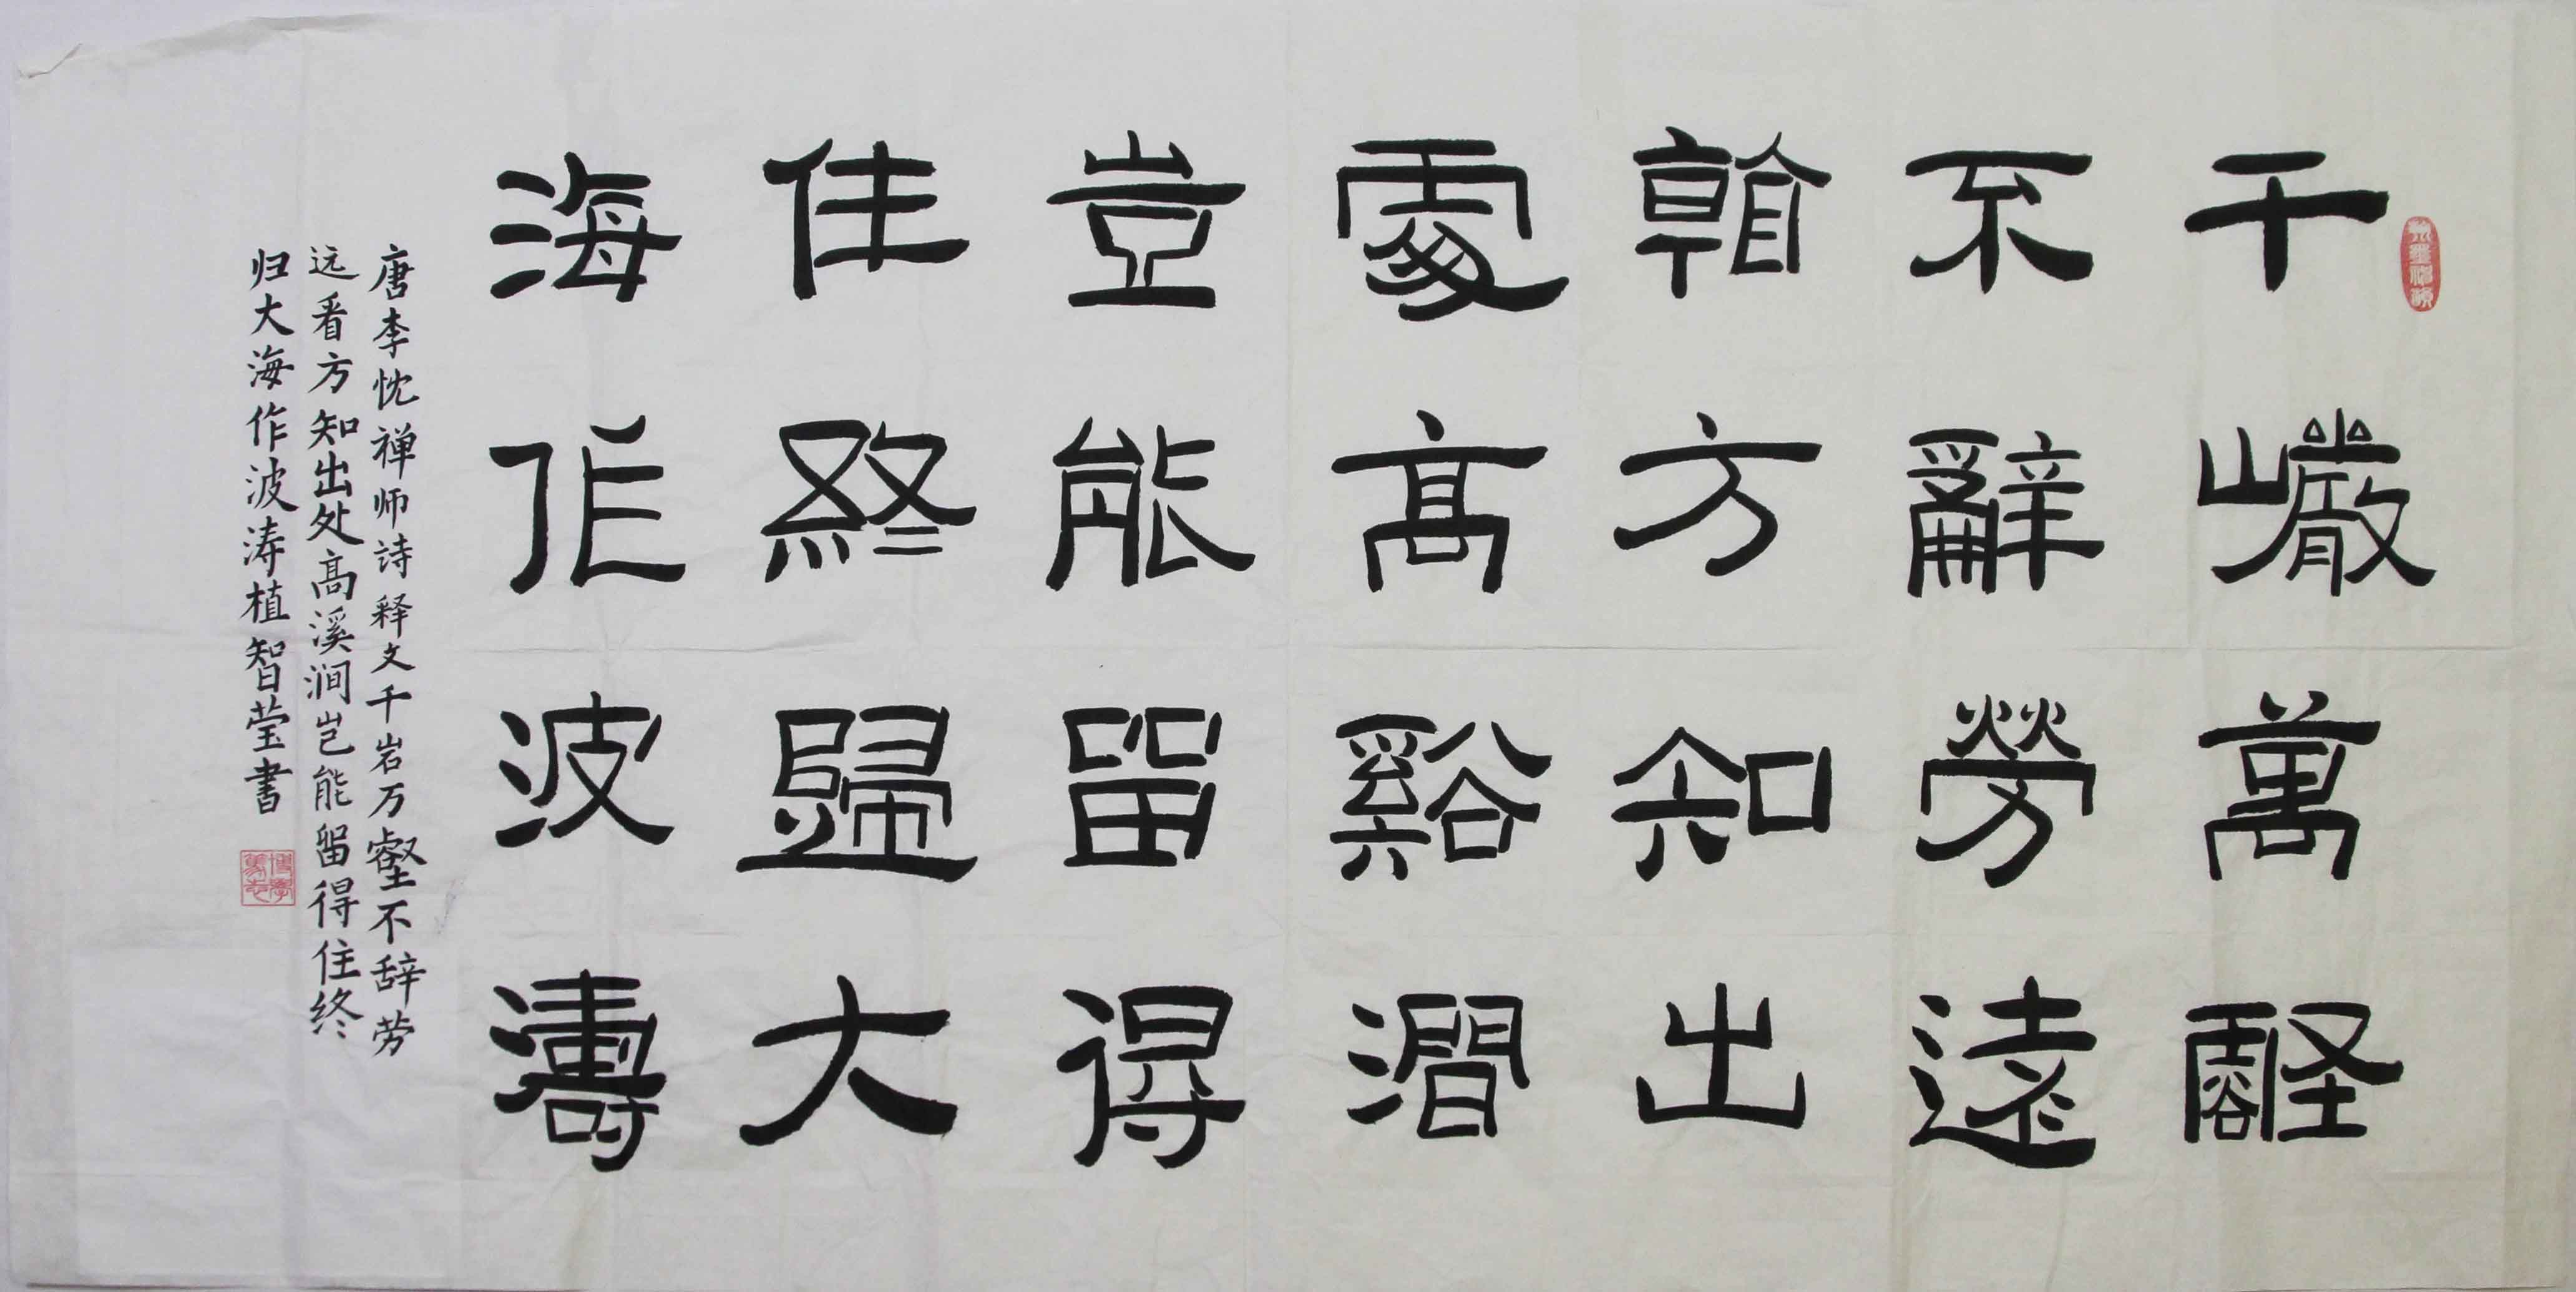 千巖萬壑
不辭勞遠
看方知出
處高谿澗
豈能留得
住終歸大
海作波濤
唐李忱禅师诗释文千岩万壑不辞劳
远看方知出处高溪涧岂能留得住终
归大海作波涛植智莹书
博學篤志